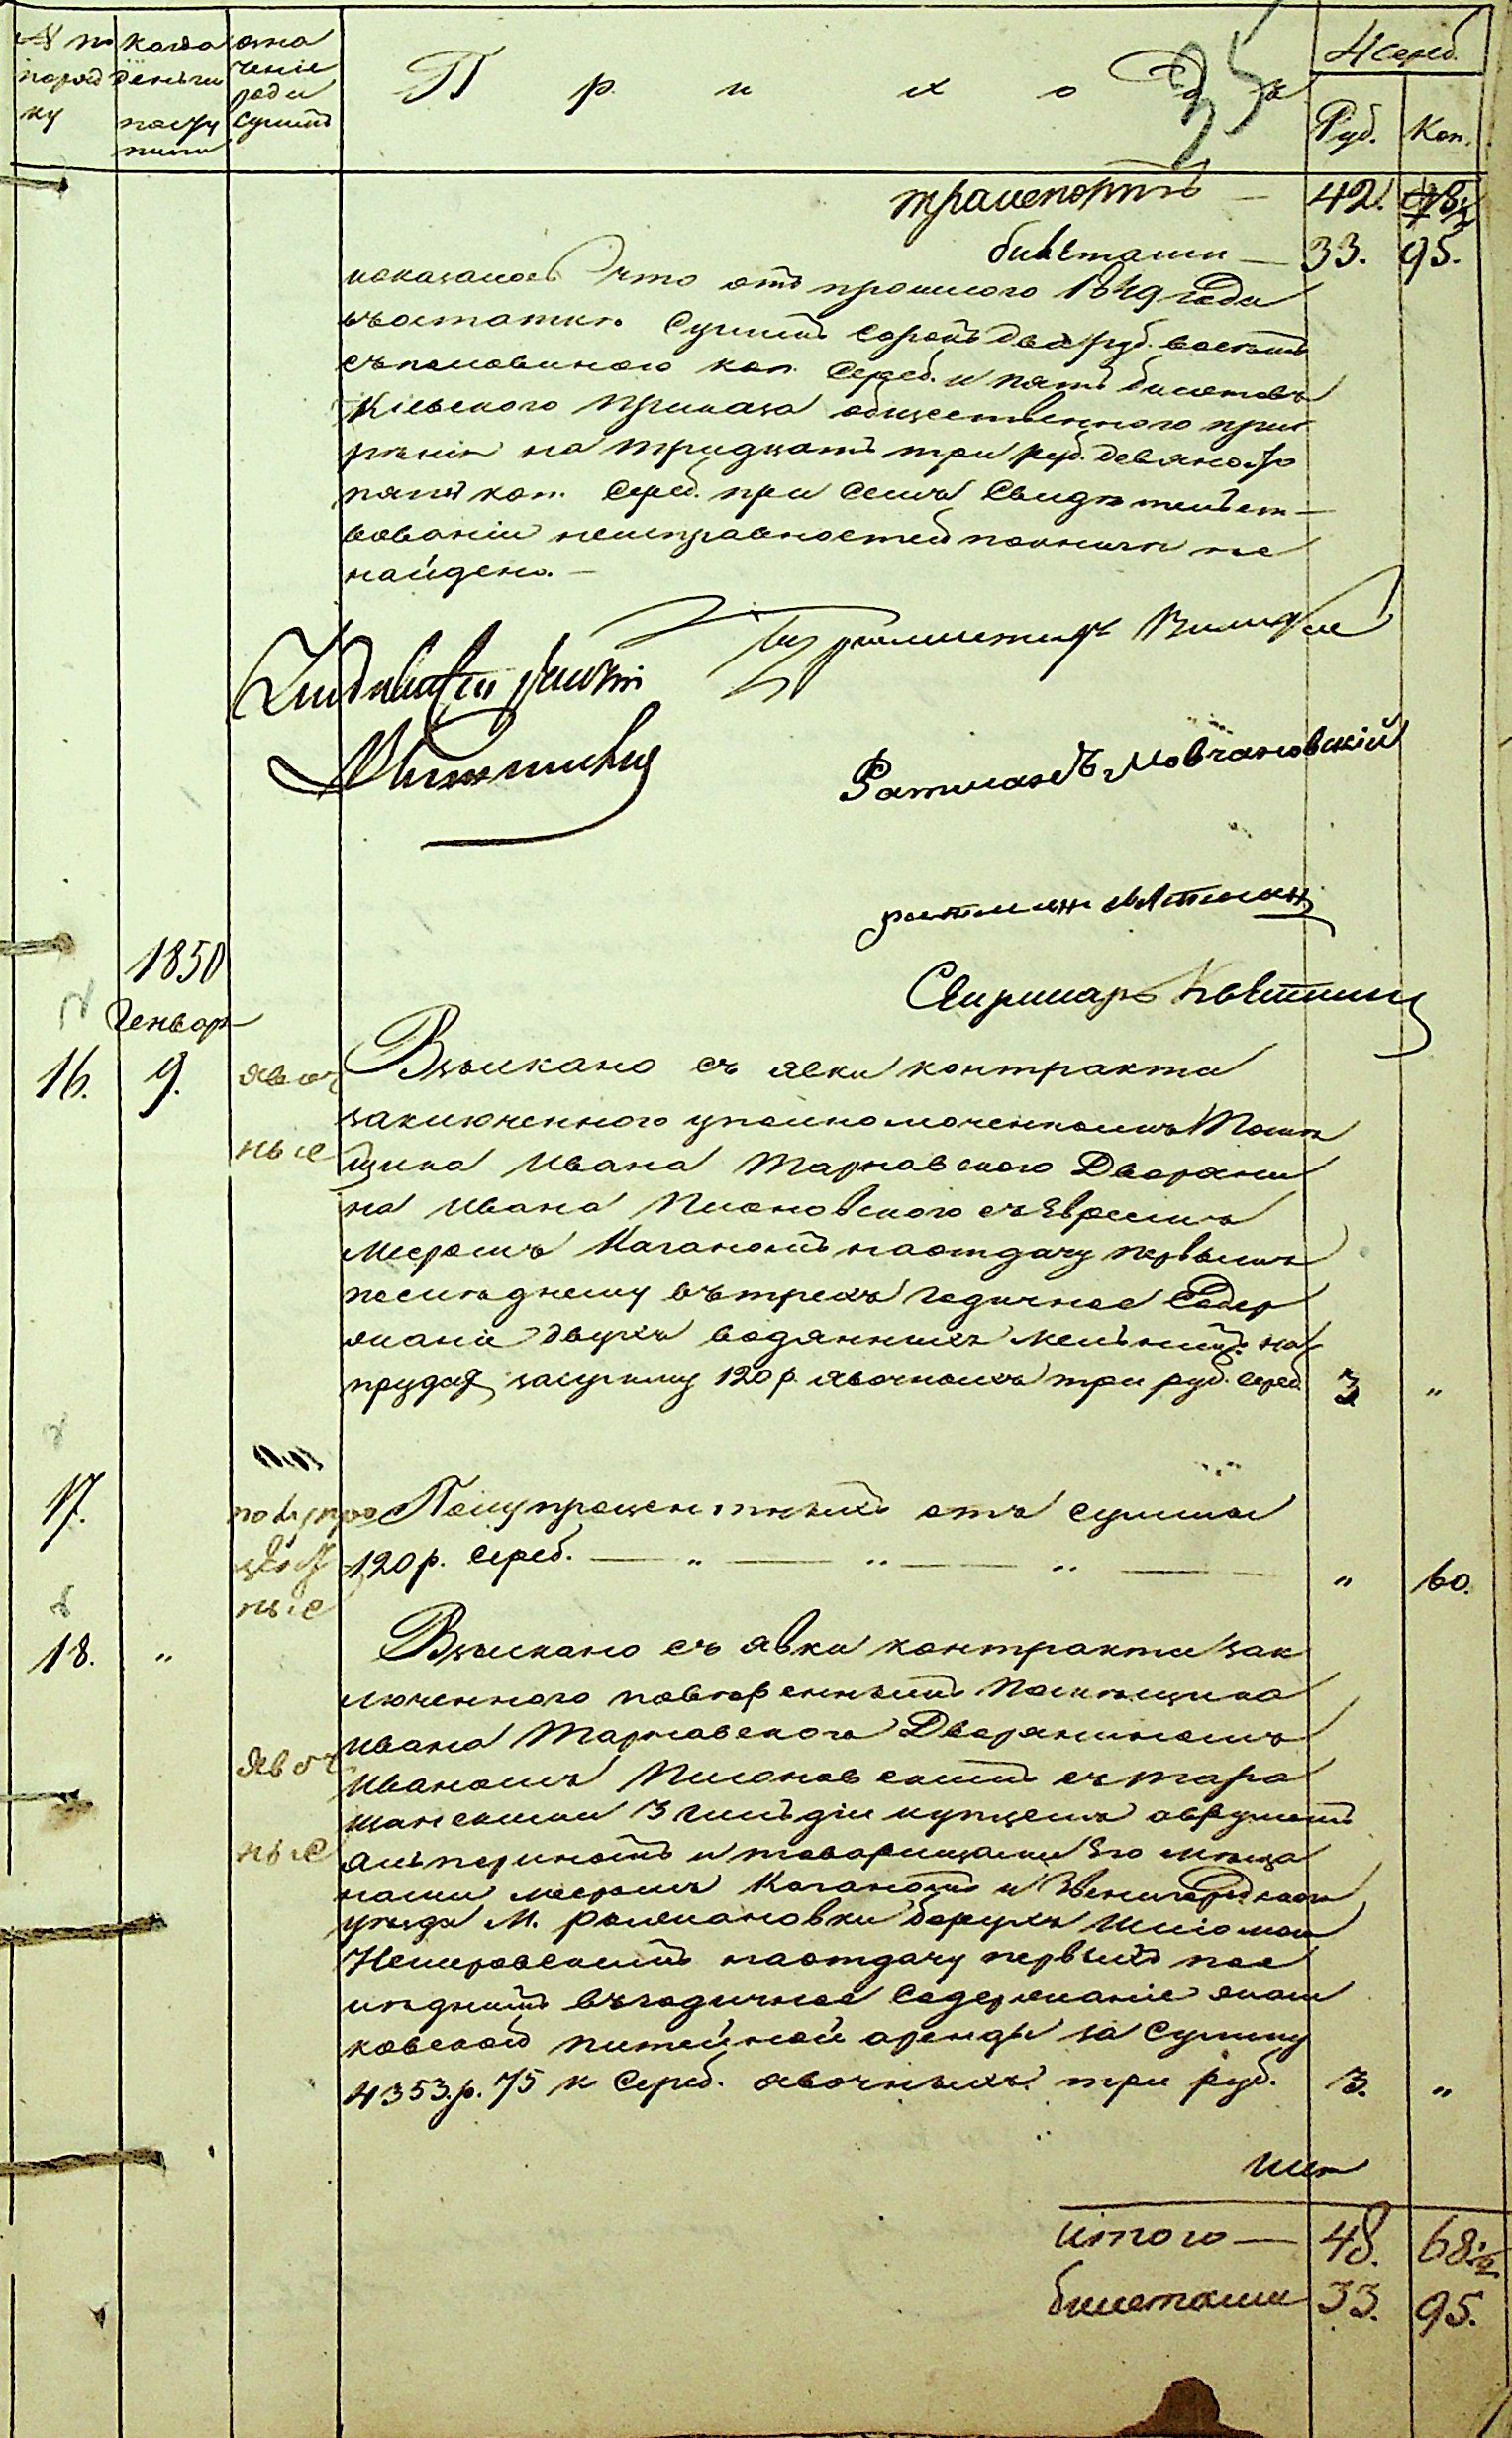 № по поряд ку
когда деньги посту пили
озна ченіе рода суммъ
Приходъ
35
Сереб.
Руб. Коп.
транспортъ — 42. 8½
билетами — 33. 95.
показалось что отъ прошлого 1849 года
въ остатке суммъ сорокъ два руб. восемь
съ половиною коп. Сереб. и пять билетовъ
Кіевского приказа общественного приз
рѣнія на тридцать три руб. девяносто
пять коп. Сереб. при семъ Свидѣтельст-
вованіи неисправностей никакихъ не
найдено. —
Бургомистръ
Ратманъ Мовчановскій
ратман
Секретарь
1850
Генваря
16. 9. явоч
ные
Взыскано съ явки контракта
заключенного уполномоченнымъ Помѣ
щика Ивана Тарновского Дворяни
на Ивана Пиановского съ Евреемъ
Мееромъ Каганомъ на отдачу первымъ
последнему въ трехъ годичное Содер
жаніе двухъ водянныхъ мельницъ на
прудах за сумму 120 р. явочныхъ три руб. сереб. 3 "
17. полупро
цент
ные
Полупроцентныхъ отъ суммы
120 р. Сереб. — " — " — " — " 60.
18. "
Взыскано съ явки контракта зак
люченного повѣреннымъ Помѣщика
Ивана Тарновского Дворяниномъ
явоч
Иваномъ Пиановскимъ съ тара
щанскими 3 гильдіи купцемъ Аврумомъ
ные
Альпериномъ и товарищами Его мѣща
нами Мееромъ Каганомъ и Звенигородского
уѣзда М. Рыжановки Борухъ Шлiомою
Немеровскимъ на отдачу первымъ пос
лѣднимъ въ годичное Содержаніе
ковской питейной аренды за сумму
4353 р. 75 к Сереб. явочныхъ три руб. 3. "
итого — 48. 68½
билетами 33. 95.